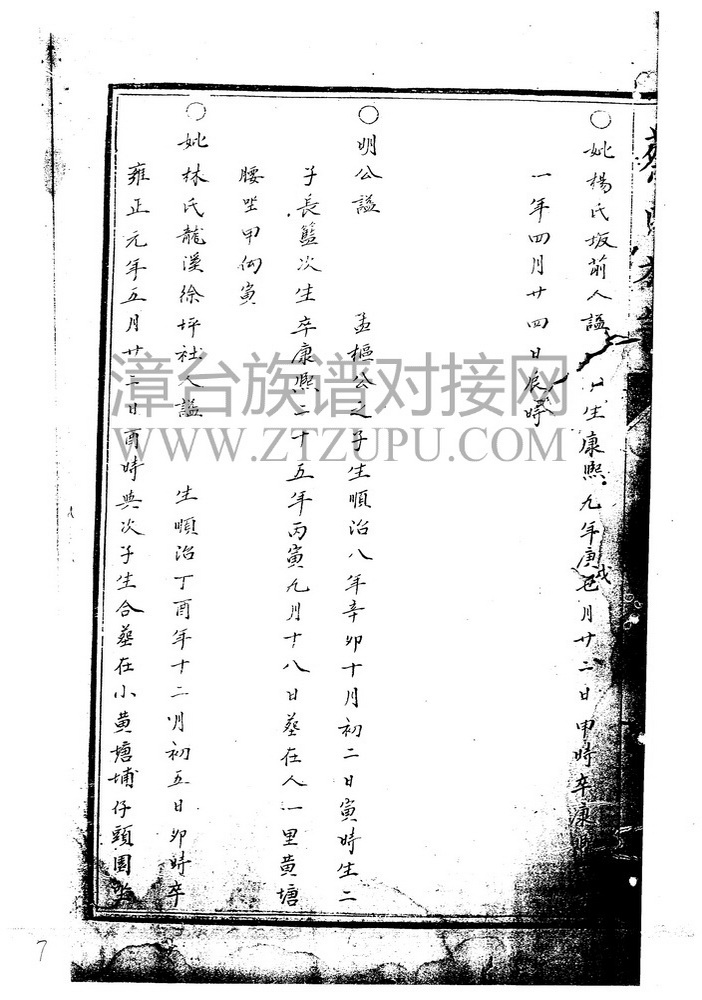 ○妣楊氏坂前人謚 生康熙九年庚戌 月廿二日甲時卒康熙
一年四月廿四日辰時
○明公謚 孟樞公之子生順治八年辛卯十月初二日寅時生二
子長籃次生卒康熙二十五年丙寅九月十八日葬在人一里黄塘
腰坐甲向寅
○妣林氏龍溪徐坪社人謚 生順治丁酉年十二月初五日卯時卒
雍正元年五月廿二日酉時與次子生合葬在小黄塘埔仔頭園
漳台族谱对接网
WWW.ZTZUPU.COM
7